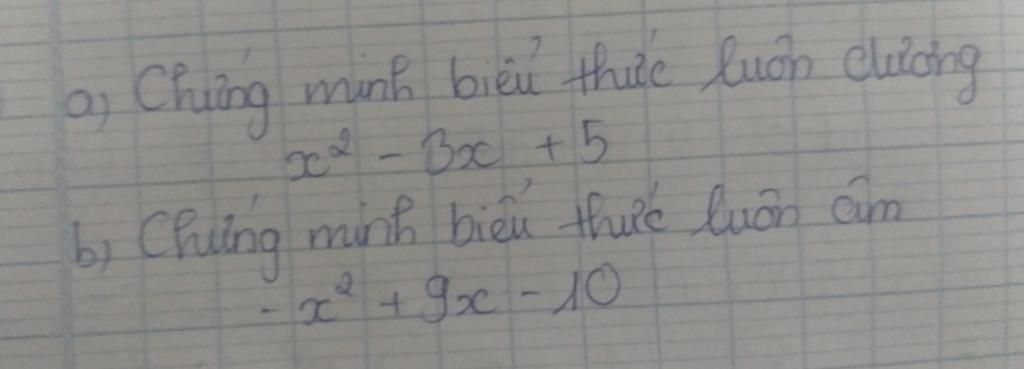 a) Chứng minh biểu thức luôn dương
x² - 3x + 5
b) Chứng minh biểu thức luôn âm
- x² + 9x - 10